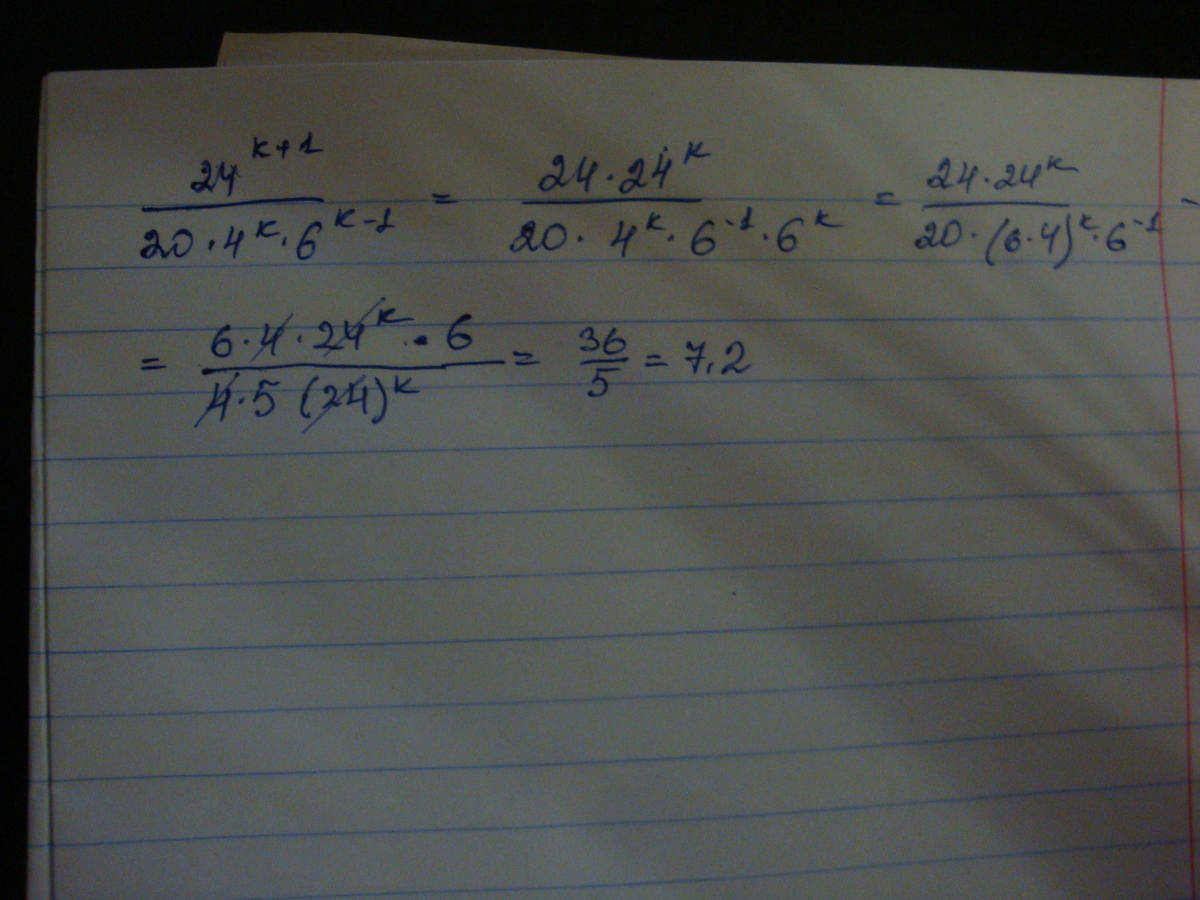 24^(k+1) / (20·4^k·6^(k-1)) = 24·24^k / (20·4^k·6^(-1)·6^k) = 24·24^k / (20·(6·4)^k·6^(-1)) -
= 6·4·24^k·6 / (4·5(24)^k) = 36/5 = 7.2